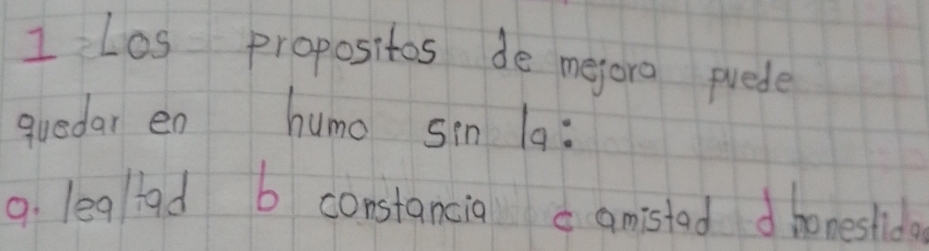 1 Los propositos de mejora puede
quedar en humo sin la:
a. lealtad b constancia c amistad d honestidad